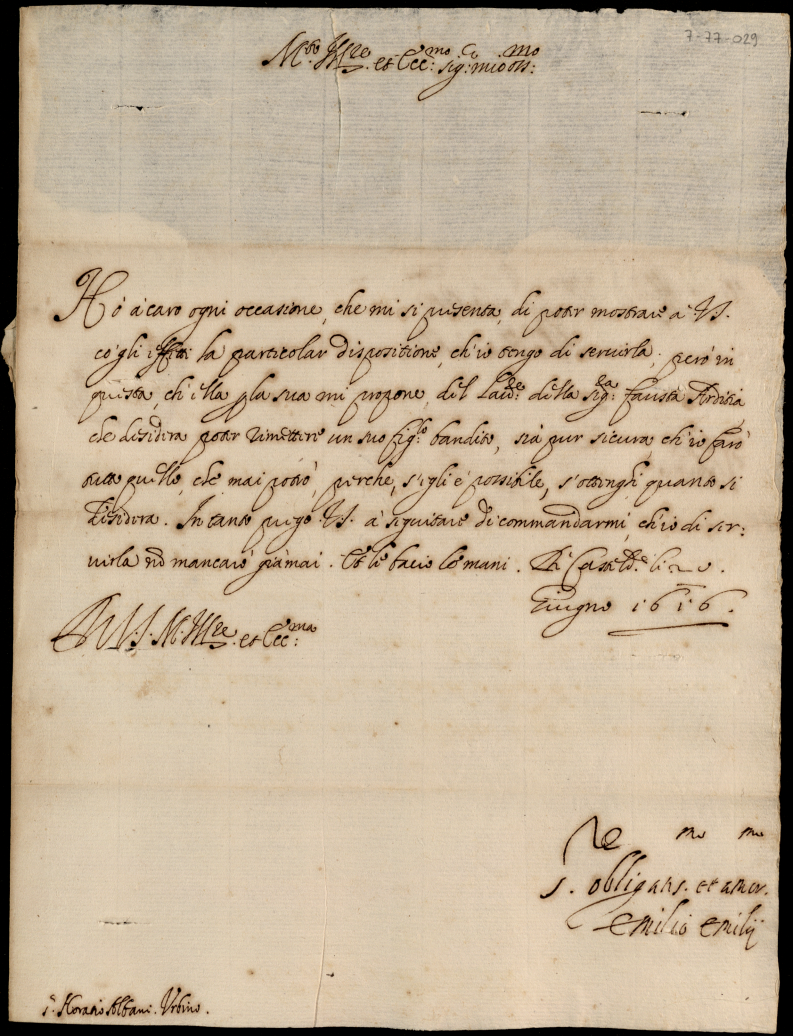 7-77-029
M.to Ill.re et Ecc.mo Sig.r mio oss.mo
Hò à caro ogni occasione, che mi si presenta, di poter mostrare a V.S.
cõ gli effetti la particolar dispositione, ch'io tengo di servirla, però in
questa, ch'ella p la sua mi propone, del della Sig.ra Fausta Arditia
che desidera poter rimettere un suo fig.lo bandito, sia pur sicura, ch'io farò
tutto quello, che mai potrò, perche, s'egli è possibile, s'ottenghi quanto si
desidera. In tanto prego V.S. à seguitare di commandarmi, ch'io di ser:
virla nõ mancarò giamai. Et le bacio le mani. Di Casteld.te li
Giugno 1616.
Di V.S. M. Ill.re et Ecc.ma
S.re obligatis.mo et amor.mo
Emilio Emilij
S.r Horatio Albani. Urbino.